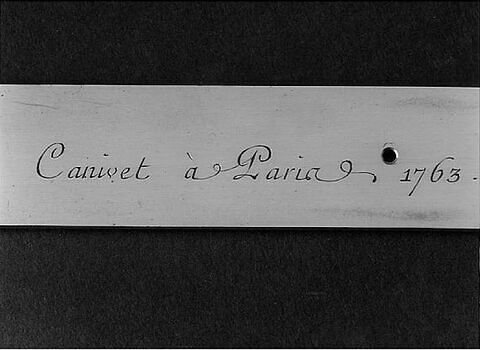 Canivet à Paris 1763.